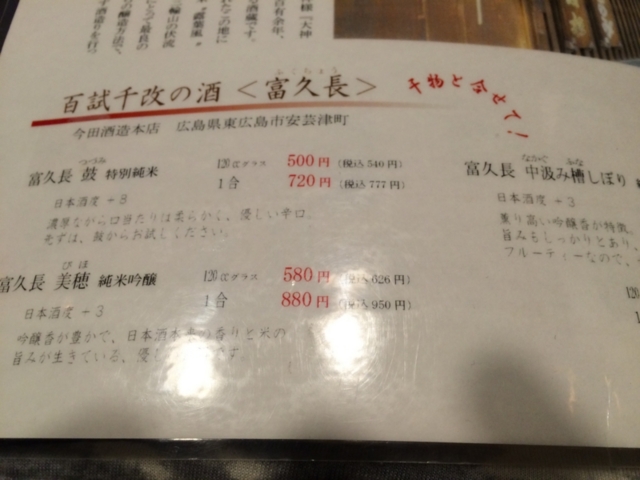 様『大神
酒蔵です。
百有余年、
輪山の伏流
醸造方法で、
を行つ
ふくちょう
百試千改の酒＜富久長＞
干物と合せて！
今田酒造本店 広島県東広島市安芸津町
つづみ
富久長 鼓 特別純米 120㏄グラス 500円 (税込540円)
1合 720円 (税込777円)
日本酒度 +8
濃厚ながら口当たりは柔らかく、優しい辛口。
先ずは、鼓からお試しください。
びほ
富久長 美穂 純米吟醸 120㏄グラス 580円 (税込626円)
1合 880円 (税込950円)
日本酒度 +3
吟醸香が豊かで、日本酒本来の香りと米の
旨みが生きている、優し
です
なかぐ ふな
富久長 中汲み槽しぼり
日本酒度 +3
薫り高い吟醸香が特徴。
旨みもしっかりとあり、
フルーティーなので、
120
1